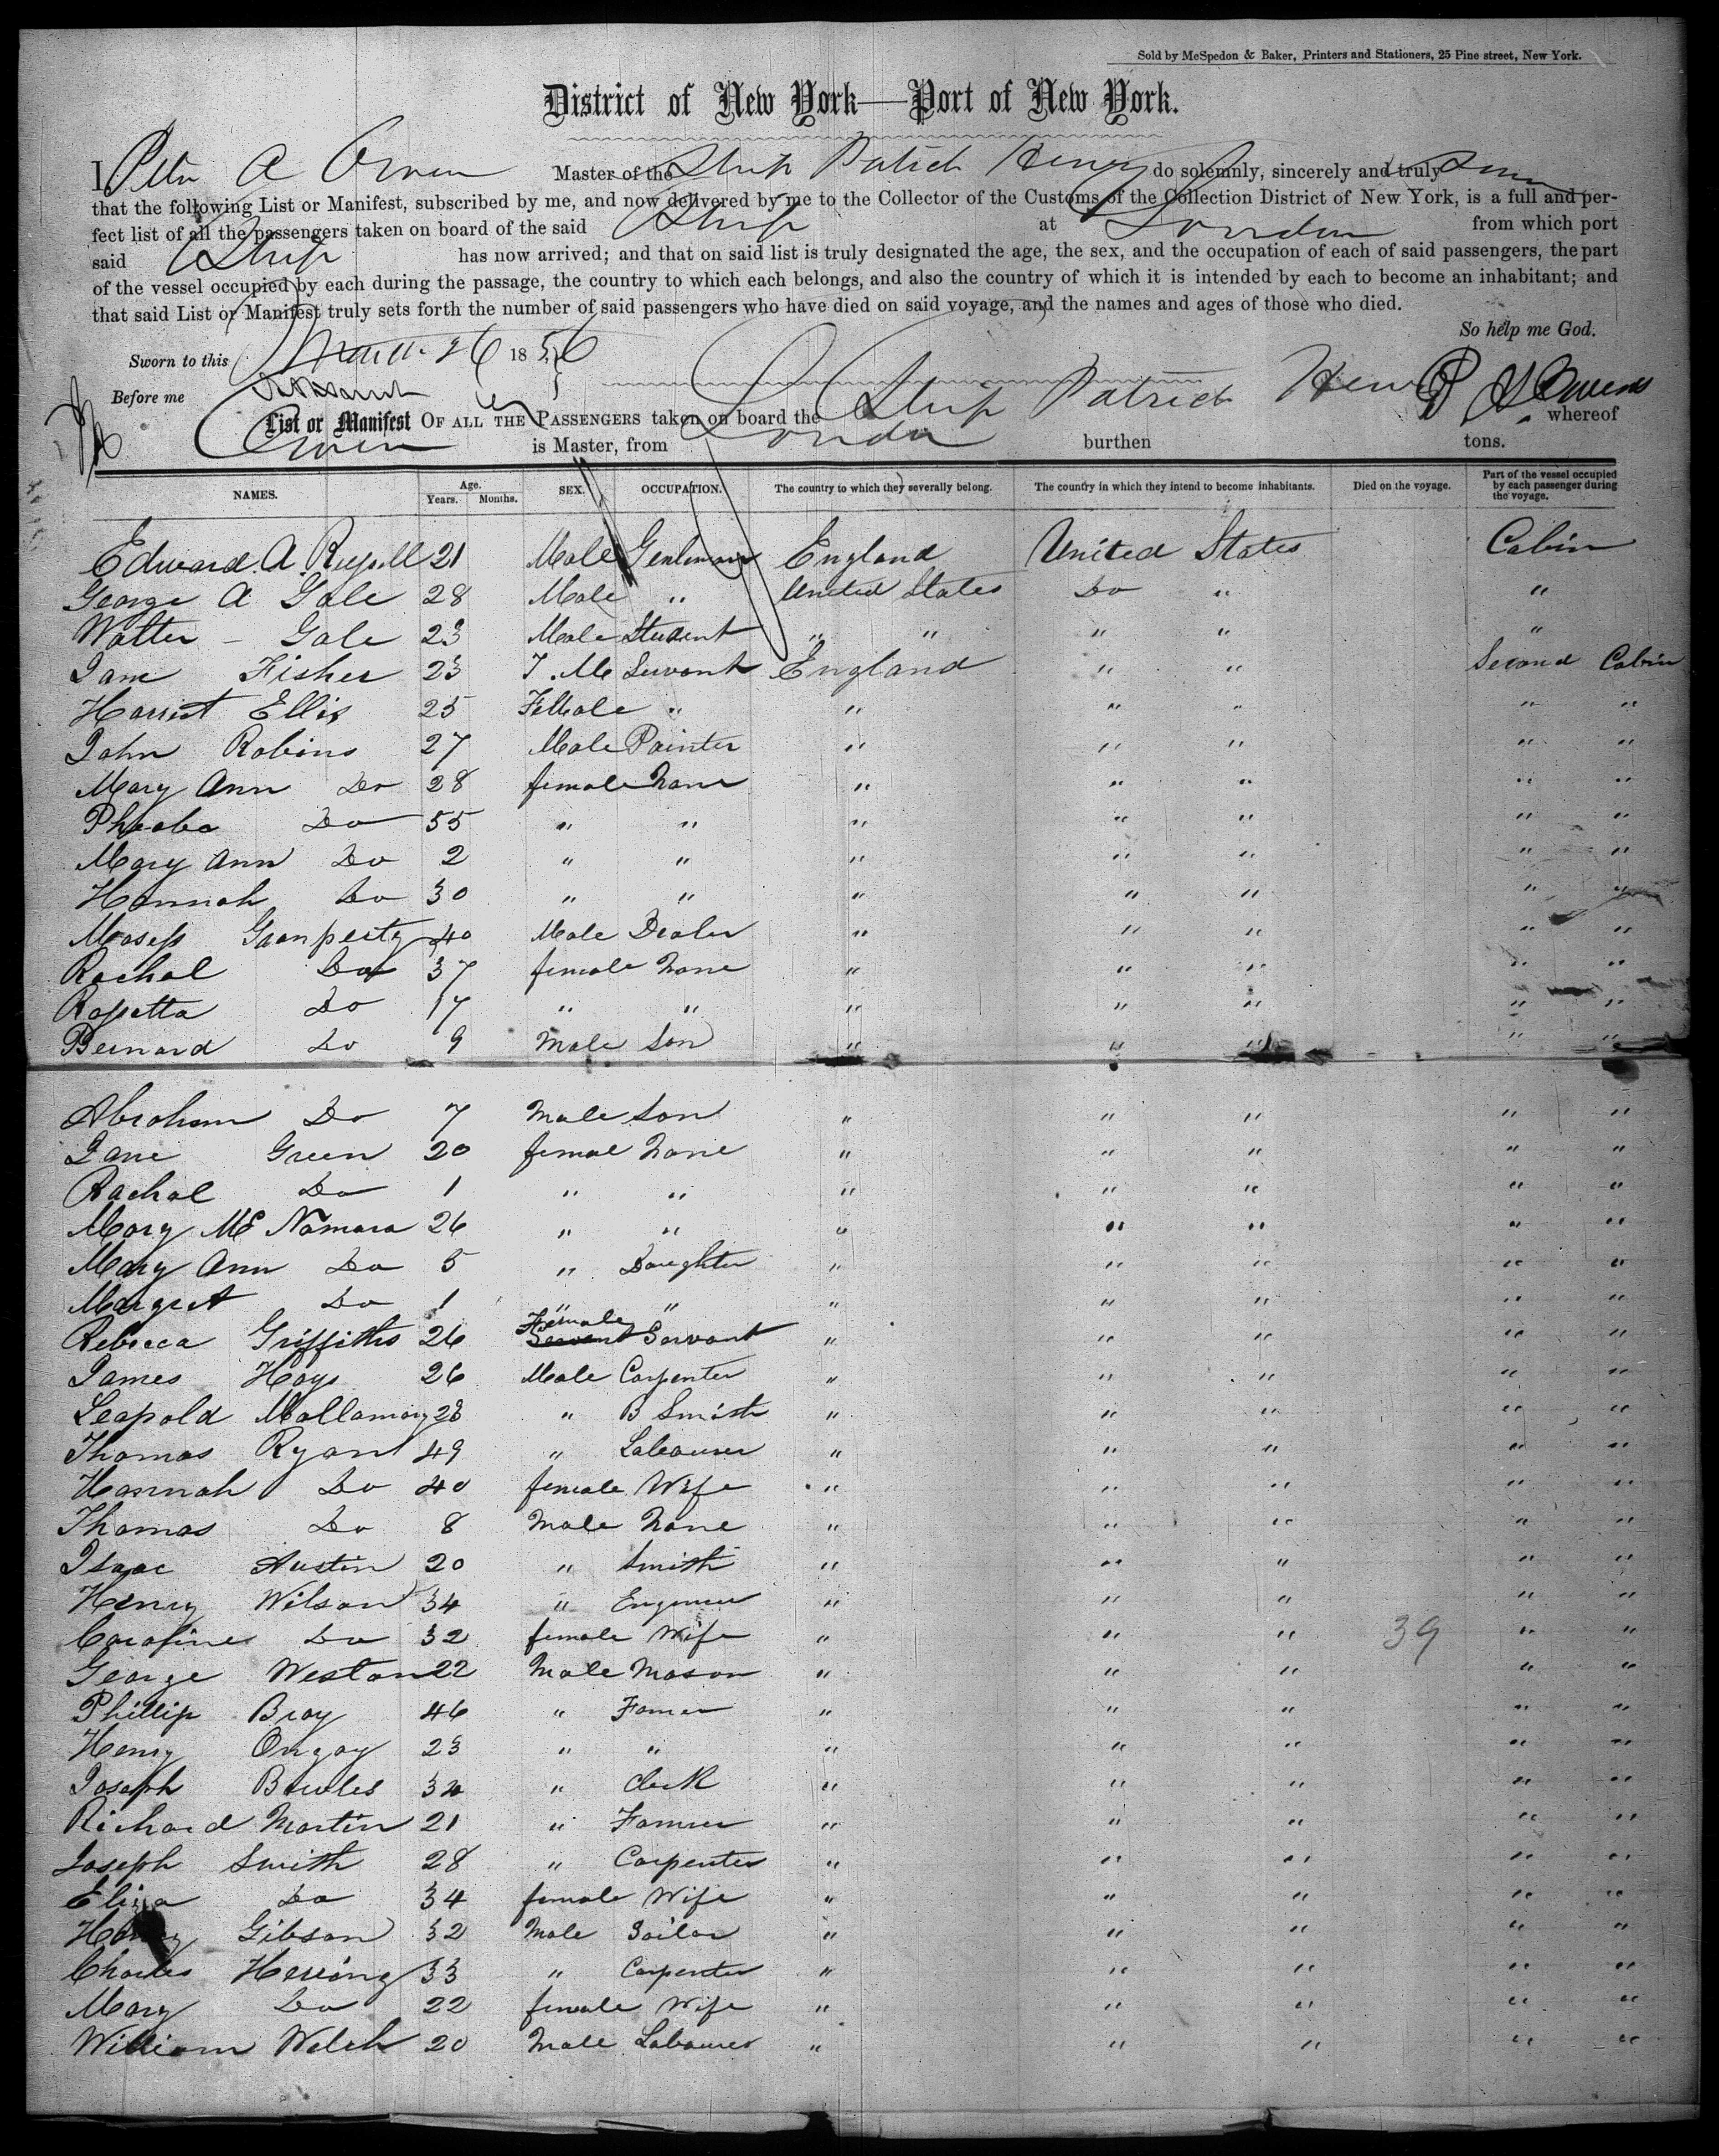 Sold by McSpedon & Baker, Printers and Stationers, 25 Pine street, New York.
District of New York—Port of New York.
I Peter A Owen Master of the Ship Patrick Henry do solemnly, sincerely and truly Swear
that the following List or Manifest, subscribed by me, and now delivered by me to the Collector of the Customs of the Collection District of New York, is a full and per-
fect list of all the passengers taken on board of the said Ship at London from which port
said Ship has now arrived; and that on said list is truly designated the age, the sex, and the occupation of each of said passengers, the part
of the vessel occupied by each during the passage, the country to which each belongs, and also the country of which it is intended by each to become an inhabitant; and
that said List or Manifest truly sets forth the number of said passengers who have died on said voyage, and the names and ages of those who died.
So help me God.
Sworn to this 26 1856
Before me
List or Manifest OF ALL THE PASSENGERS taken on board the Ship Patrick Henry whereof
Owen is Master, from London burthen tons.
NAMES. Age. Years. Months. SEX. OCCUPATION. The country to which they severally belong. The country in which they intend to become inhabitants. Died on the voyage. Part of the vessel occupied by each passenger during the voyage.
Edward. A. Russell 21 Male Gentleman England United States Cabin
George A Gale 28 Male " United States Do " "
Walter - Gale 23 Male Student " " " " "
Jane Fisher 23 F. Ml Servant England " " Second Cabin
Harriet Ellis 25 FeMale " " " " " "
John Robins 27 Male Painter " " " " "
Mary Ann Do 28 female None " " " " "
Pheabe Do 55 " " " " " " "
Mary Ann Do 2 " " " " " " "
Hannah Do 30 " " " " " " "
Moses 40 Male Dealer " " " " "
Rachal Do 37 female None " " " " "
Rosetta Do 17 " " " " " " "
Bernard Do 9 Male Son " " " " "
Abraham Do 7 Male Son " " " " "
Jane Green 20 femal None " " " " "
Rachal Do 1 " " " " " " "
Mary Mc Namara 26 " " " " " " "
Mary Ann Do 5 " Daughter " " " " "
Margret Do 1 " " " " " " "
Rebecca Griffiths 26 Female Servant Servant " " " " "
James Hays 26 Male Carpenter " " " " "
Leapold 28 " B Smith " " " " "
Thomas Ryan 49 " Labourer " " " " "
Hannah Do 40 female Wife " " " " "
Thomas Do 8 Male None " " " " "
Isaac Austin 20 " Smith " " " " "
Henry Wilson 34 " Engineer " " " " "
Caroline Do 32 female Wife " " " 39 " "
George Weston 22 Male Mason " " " " "
Phillip Bray 46 " Famer " " " " "
Henry Ongay 23 " " " " " " "
Joseph Bowles 32 " Clerk " " " " "
Richard Martin 21 " Famer " " " " "
Joseph Smith 28 " Carpenter " " " " "
Eliza Do 34 female Wife " " " " "
Henry Gibson 32 Male Sailor " " " " "
Charles Hering 33 " Carpenter " " " " "
Mary Do 22 female Wife " " " " "
William Welch 20 Male Labourer " " " " "